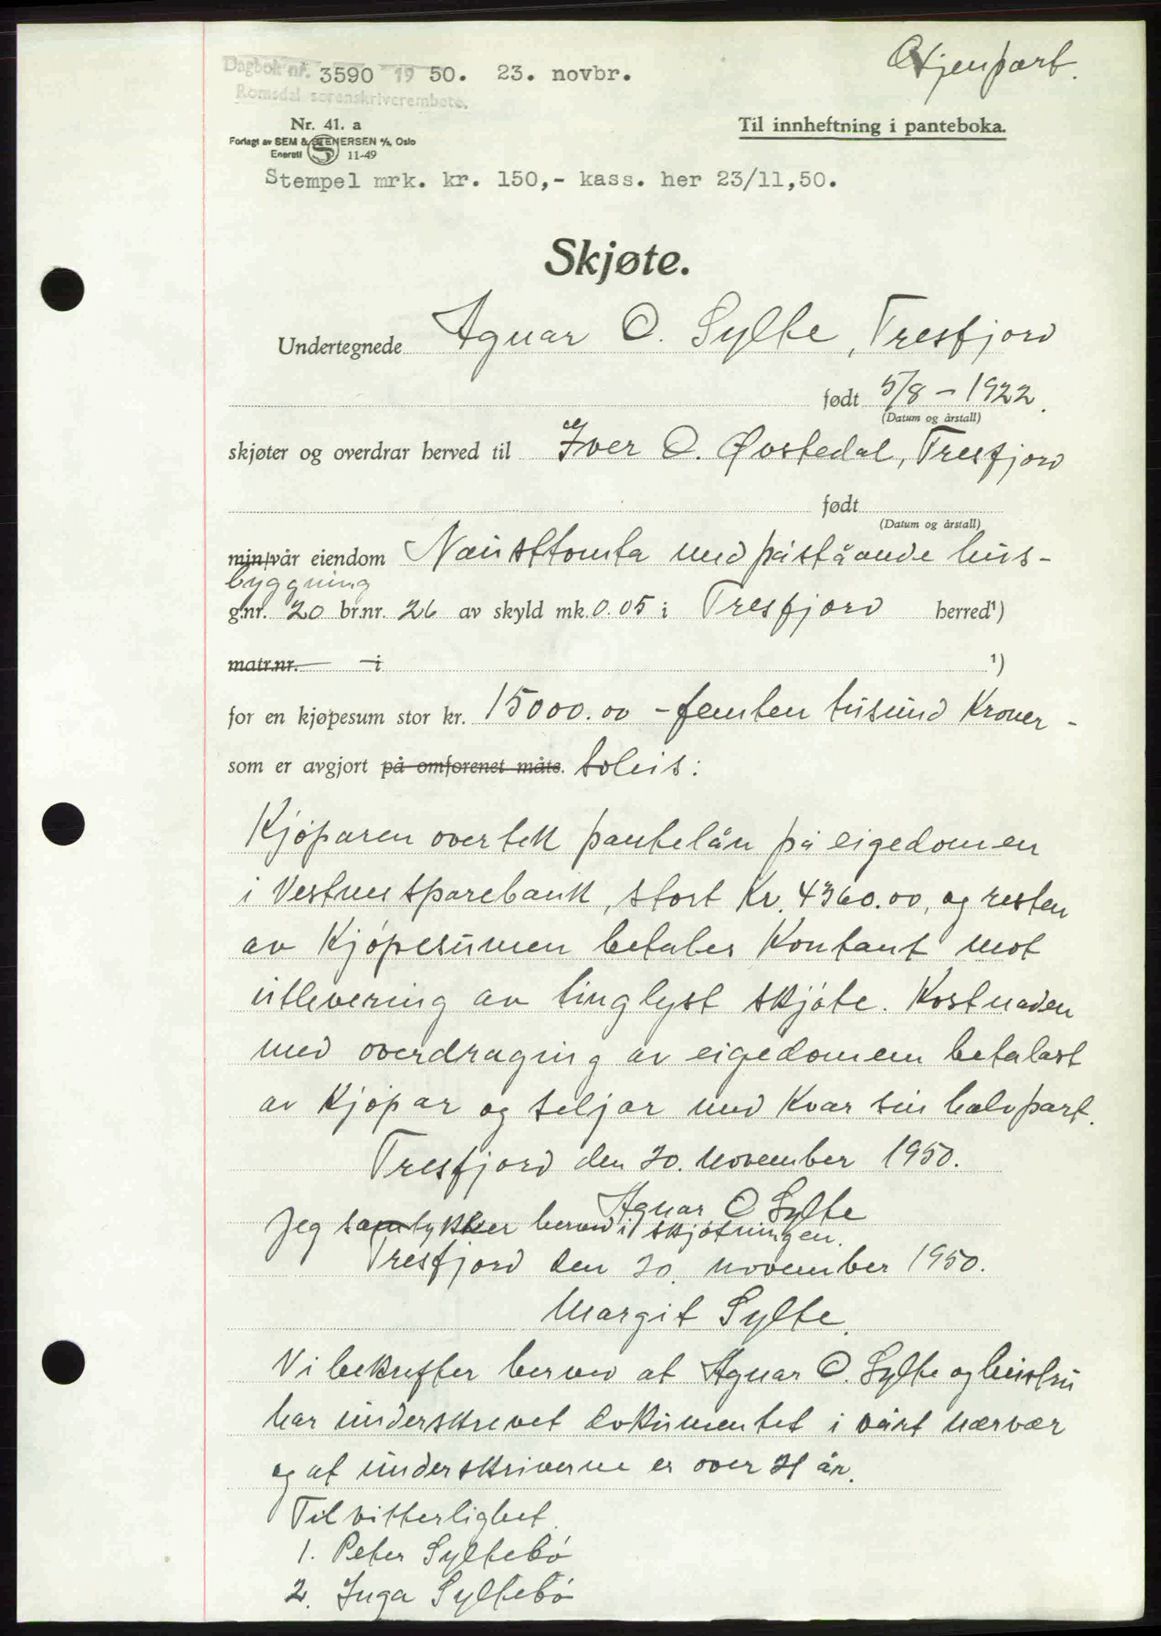 Gjenpart.
Dagbok nr. 3590 1950. 23. novbr.
Romsdal sorenskriverembete.
Nr. 41. a
Til innheftning i panteboka.
Forlagt av SEM & STENERSEN A/S, Oslo
Enerett S 11-49
Stempel mrk. kr. 150,- kass. her 23/11,50.
Skjøte.
Undertegnede Agnar O. Sylte, Tresfjord
født 5/8 - 1922.
(Datum og årstall)
skjøter og overdrar herved til Iver O. Øvstedal, Tresfjord
født
(Datum og årstall)
min/vår eiendom Nausttomta med påståande hus-
byggning
g.nr. 20 br.nr. 26 av skyld mk. 0.05 i Tresfjord herred¹)
matr.nr. i ¹)
for en kjøpesum stor kr. 15000.00 - femten tusund Kroner -
som er avgjort på omforenet måte. soleis:
Kjøparen overtek pantelån på eigedomen
i Vestnes sparebank, stort Kr. 4360.00, og resten
av Kjøpesumen betales Kontant mot
utlevering av tinglyst skjøte. Kostnaden
med overdraging av eigedomen betalast
av Kjøpar og seljar med Kvar sin halvpart.
Tresfjord den 20. november 1950.
Agnar O Sylte
Jeg samtykker herved i skjøtningen.
Tresfjord den 20. november 1950.
Margit Sylte.
Vi bekrefter herved at Agnar O. Sylte og hustru
har underskrevet dokumentet i vårt nærvær
og at underskriverne er over 21 år.
Til vitterlighet.
1. Peter Syltebø
2. Inga Syltebø